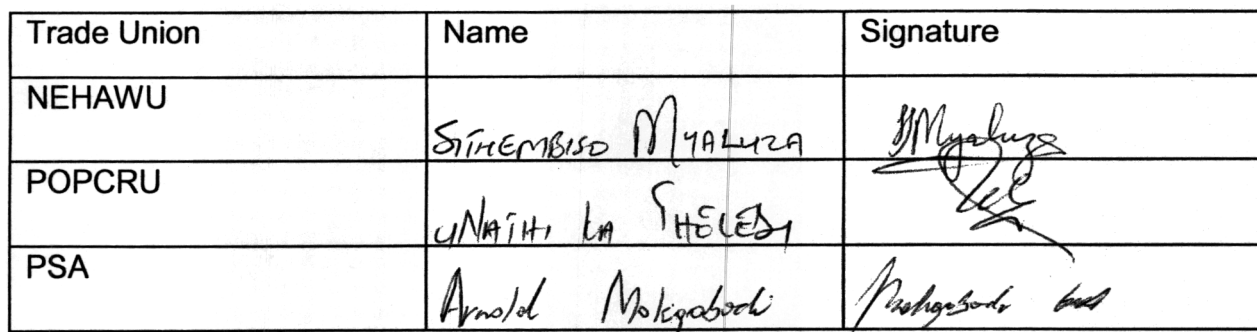 Trade Union Name Signature
NEHAWU
SITHEMBISO MYALUZA
POPCRU
UNATHI KA THELEDI
PSA
Arnold Mokgabodi